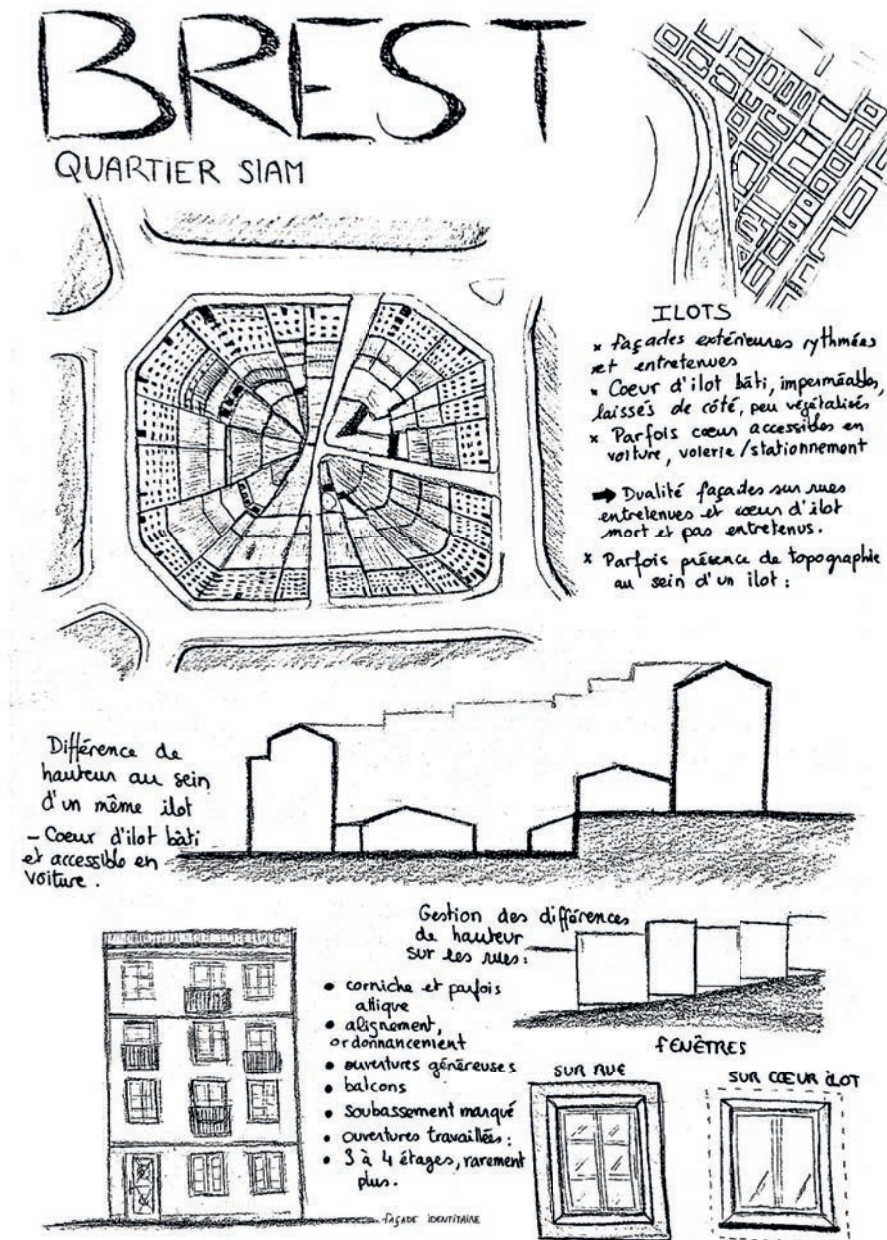 BREST
QUARTIER SIAM
ILOTS
× façades extérieures rythmées
et entretenues
× Coeur d'ilot bâti, imperméables,
laissés de côté, peu végétalisés
× Parfois coeur accessibles en
voiture, voierie / stationnement
➡ Dualité façades sur rues
entretenues et coeur d'ilot
mort et pas entretenus.
× Parfois présence de topographie
au sein d'un ilot :
Différence de
hauteur au sein
d'un même ilot
– Coeur d'ilot bâti
et accessible en
voiture.
Gestion des différences
de hauteur
sur les rues :
• corniche et parfois
attique
• alignement,
ordonnancement
• ouvertures généreuses
• balcons
• soubassement marqué
• ouvertures travaillées :
• 3 à 4 étages, rarement
plus.
FAÇADE IDENTITAIRE
FENÊTRES
SUR RUE
SUR CŒUR ILOT